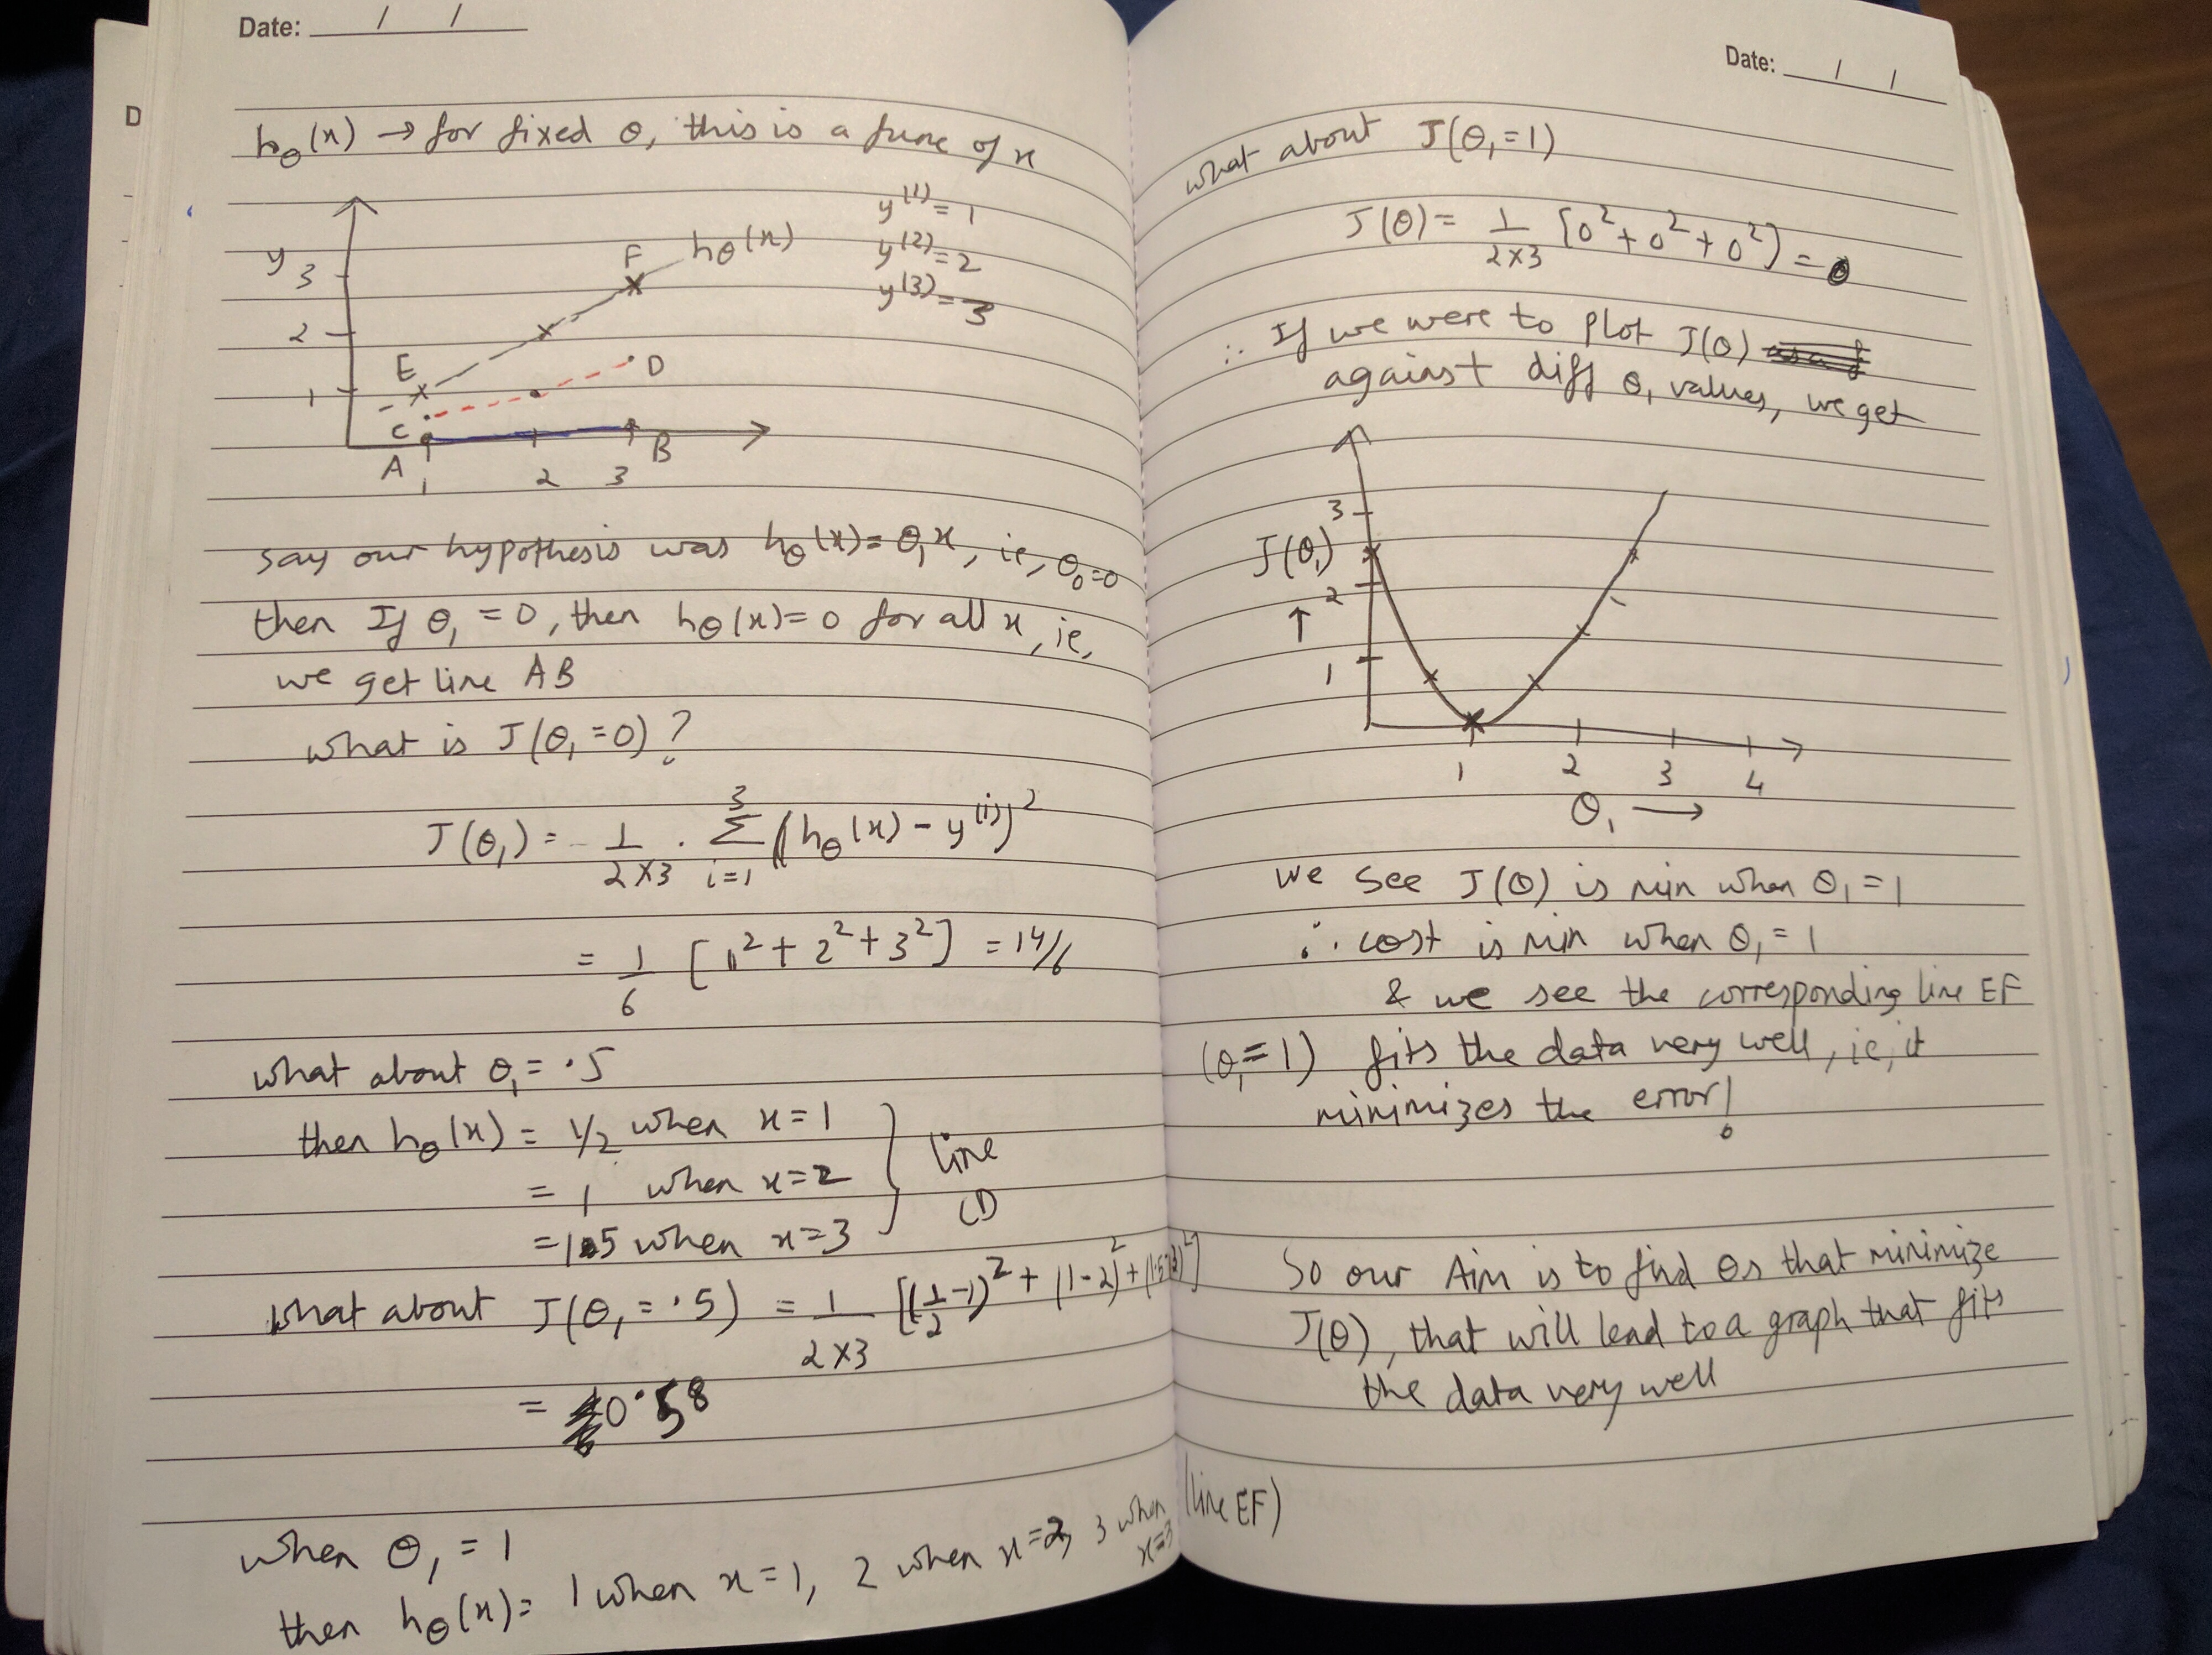 Date: / /
D
hθ(x) → for fixed θ, this is a func of x
y⁽¹⁾ = 1
y⁽²⁾ = 2
y⁽³⁾ = 3
y
3
2
1
E
F
hθ(x)
C
D
A
B
1 2 3
say our hypothesis was hθ(x) = θ₁x, ie, θ₀=0
then If θ₁ = 0, then hθ(x) = 0 for all x, ie,
we get line AB
what is J(θ₁ = 0)?
J(θ₁) = 1/2×3 · Σ i=1 3 (hθ(x) - y⁽ⁱ⁾)²
= 1/6 [1² + 2² + 3²] = 14/6
what about θ₁ = .5
then hθ(x) = 1/2 when x = 1
= 1 when x = 2
= 1.5 when x = 3
} line CD
what about J(θ₁ = .5) = 1/2×3 [(1/2 -1)² + (1-2)² + (1.5-3)²]
= 0.58
when θ₁ = 1
then hθ(x) = 1 when x = 1, 2 when x = 2, 3 when x=3 (line EF)
Date: / /
what about J(θ₁=1)
J(θ) = 1/2×3 [0² + 0² + 0²] = 0
∴ If we were to plot J(θ)
against diff θ₁ values, we get
3
J(θ₁)
2
↑
1
1 2 3 4
θ₁ →
we see J(θ) is min when θ₁ = 1
∴ cost is min when θ₁ = 1
& we see the corresponding line EF
(θ₁=1) fits the data very well, ie, it
minimizes the error!
So our Aim is to find θs that minimize
J(θ), that will lead to a graph that fits
the data very well